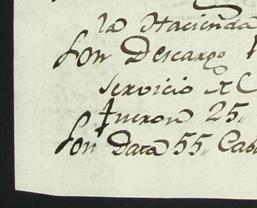 la Hacienda
Son Descargo
servicio R C
fueron 25"
Son Data 55" Cab